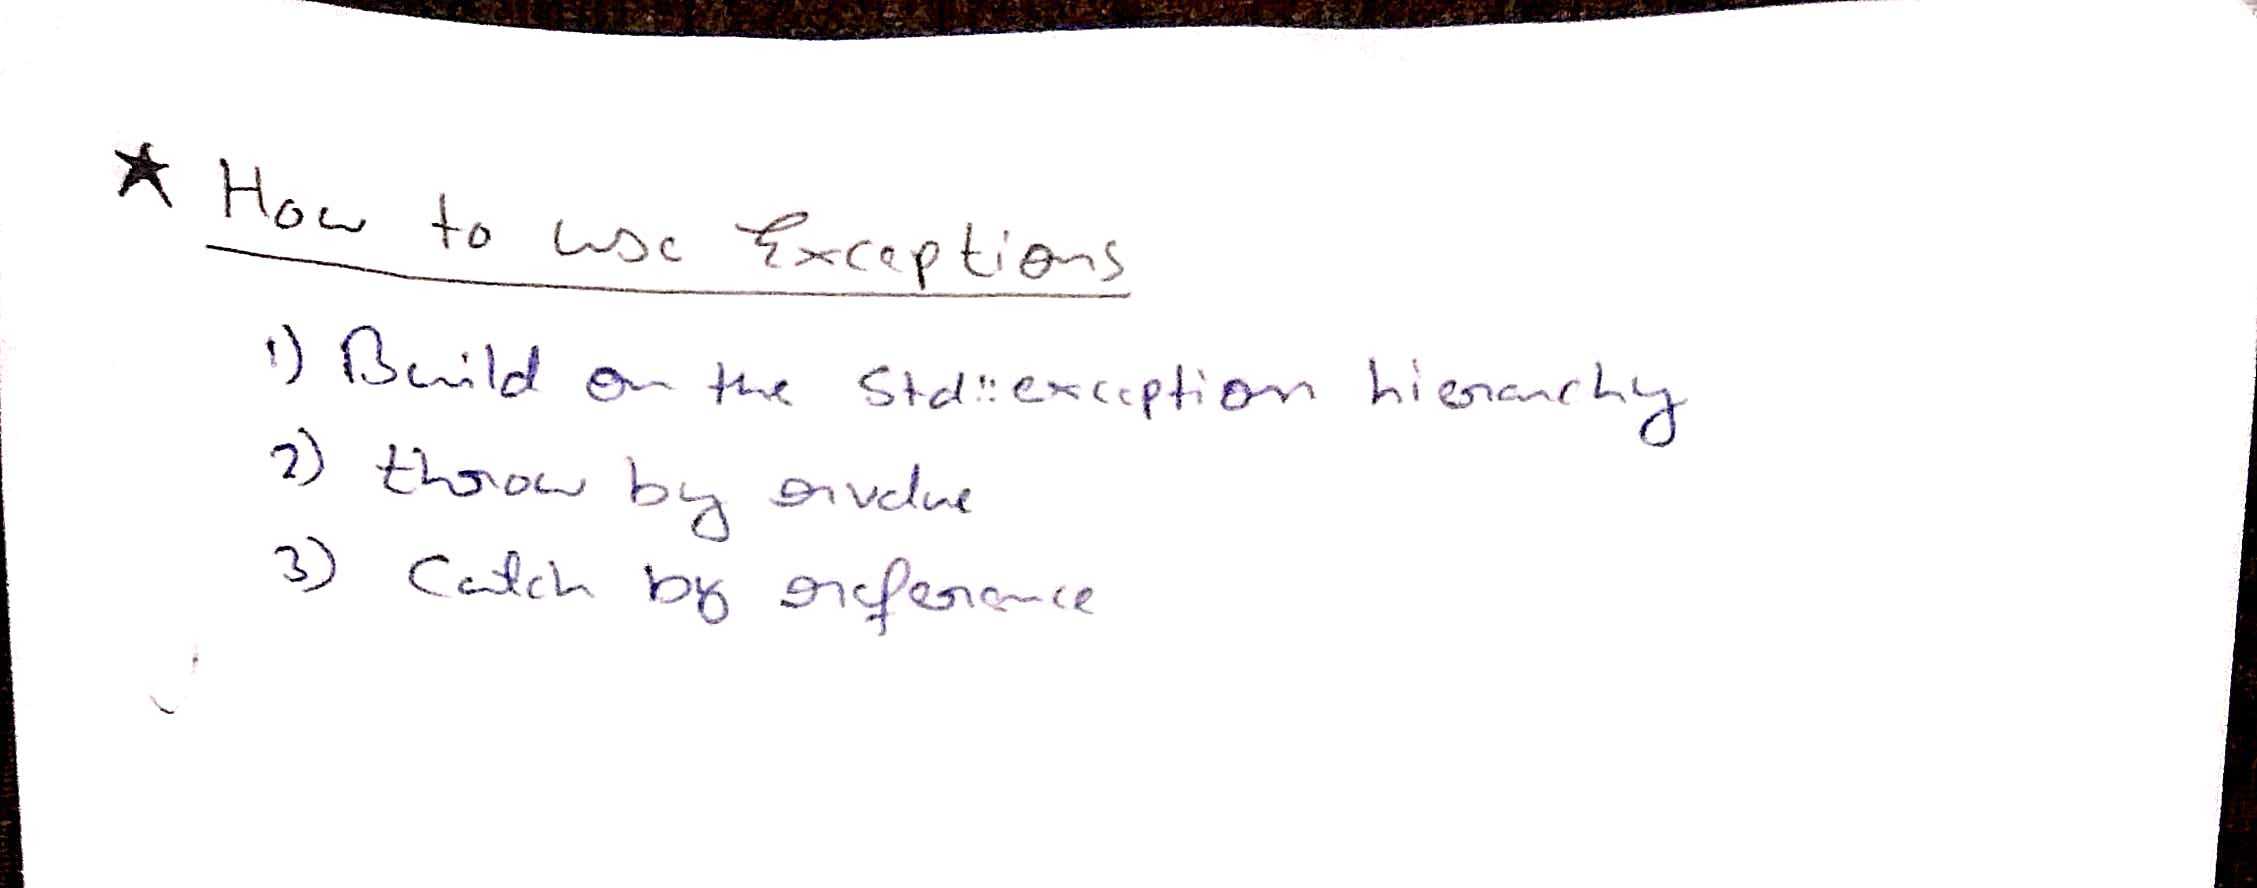 ★ How to use Exceptions
1) Build on the Std::exception hierarchy
2) throw by rvalue
3) Catch by reference